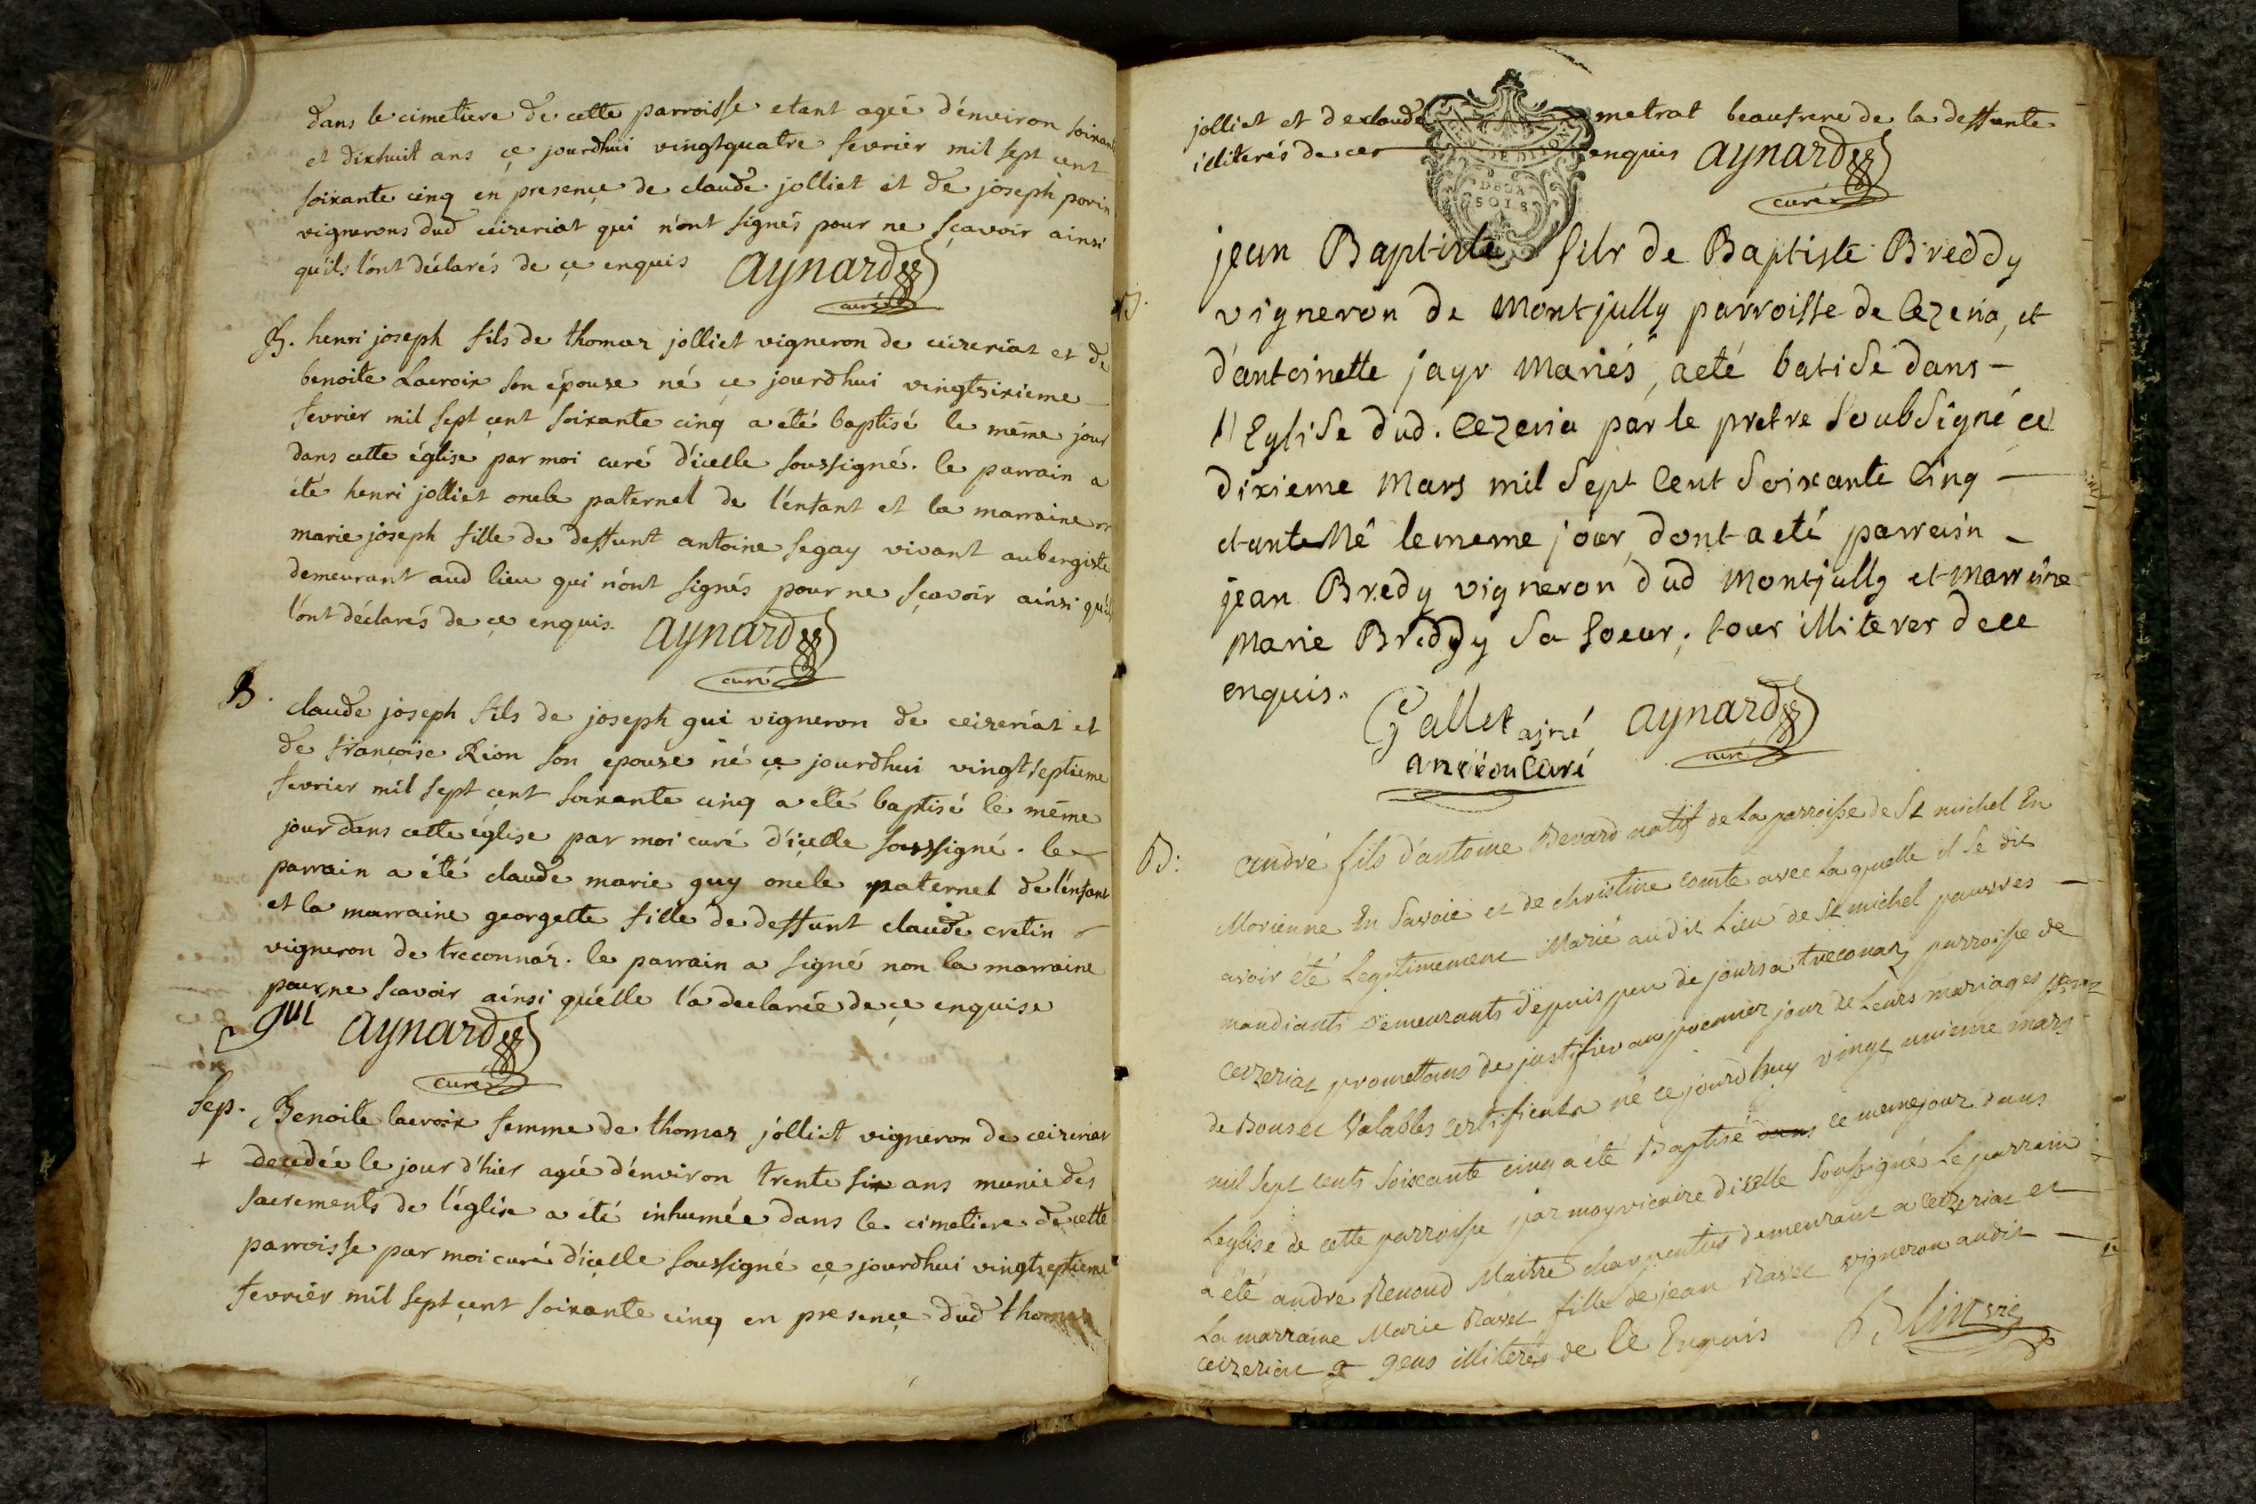 dans le cimetiere de cette parroisse etant agée d'énviron soixante
et dixhuit ans çe jourdhui vingtquatre fevrier mil sept cent
soixante cinq en presençe de claude jolliet et de joseph porin
vignerons dud ceizeriat qui n'ont signés pour ne sçavoir ainsi
qu'ils l'ont déclarés de çe enquis aynard
curé
B. henri joseph fils de thomas jolliet vigneron de ceizeriat et de
benoite Lacroix son épouse né çe jourdhui vingtsixieme
fevrier mil sept çent soixante cinq a été baptisé le même jour
dans cette église par moi curé d'icelle soussigné. le parrain a
été henri jolliet oncle paternel de l'énfant et la marraine
marie joseph fille de deffunt antoine segay vivant aubergiste
demeurant aud lieu qui n'ont signés pour ne sçavoir ainsi qu'ils
l'ont déclarés de çe enquis. aynard
curé
B. claude joseph fils de joseph gui vigneron de ceizeriat et
de françoise Rion son epouse né çe jourdhui vingtseptieme
fevrier mil sept çent soixante cinq a été baptisé le même
jour dans cette église par moi curé d'içelle soussigné. le
parrain a été claude marie guy oncle paternel de l'énfant
et la marraine georgette fille de deffunt claude cretin
vigneron de treconnas. le parrain a signé non la marraine
pour ne scavoir ainsi qu'elle l'a declarée de çe enquise
gui aynard
curé
Sep. Benoite lacroix femme de thomas jolliet vigneron de ceizeriat
+ deçedée le jour d'hier agée d'énviron trente six ans munie des
sacrements de l'église a été inhumée dans le cimetiere de cette
parroisse par moi curé d'içelle soussigné çe jourdhui vingtseptieme
fevrier mil sept çent soixante cinq en presençe dud thomas
jolliet et de claude metrat beaufrere de la deffunte
illiterés de ce enquis aynard
curé
DEUX
SOLS
B. jean Baptiste fils de Baptiste Breddy
vigneron de Montjully parroisse de Cezeria, et
d'antoinette jayr Mariés, a eté batisé dans
l'Eglise dud. Cezeria par le pretre Soubsigné ce
dixieme Mars mil Sept Cent Soixante Cinq
etant Né le meme jour, dont a eté parrain
jean Bredy vigneron dud Montjully et Marreine
Marie Breddy Sa Soeur, tous illiteres de ce
enquis.
Gallet ainé aynard
ancien Curé curé
B: andré fils d'antoine Bevard natif de la parroisse de St michel En
Morienne En Savoie et de christine comte avec Laquelle il se dit
avoir été Legitimement Marié audit Lieu de St michel pauvres
mandiants demeurants depuis peu de jours a treconaz parroisse de
ceizeriat promettans de justifier au premier jour de Leurs mariages par
de Bons et Valables certificats né ce jourdhuy vingt unieme mars
mil sept cents soixante cinq a été Baptisé dans ce meme jour dans
Leglise de cette parroisse par moy vicaire dicelle soussigné Le parrain
a été andré Renoud Maitre charpentier demeurant a ceizeriat et
La marraine Marie Ravet fille de jean Ravet vigneron audit
ceizeriat gens illiterés de Ce Enquis Blin vic